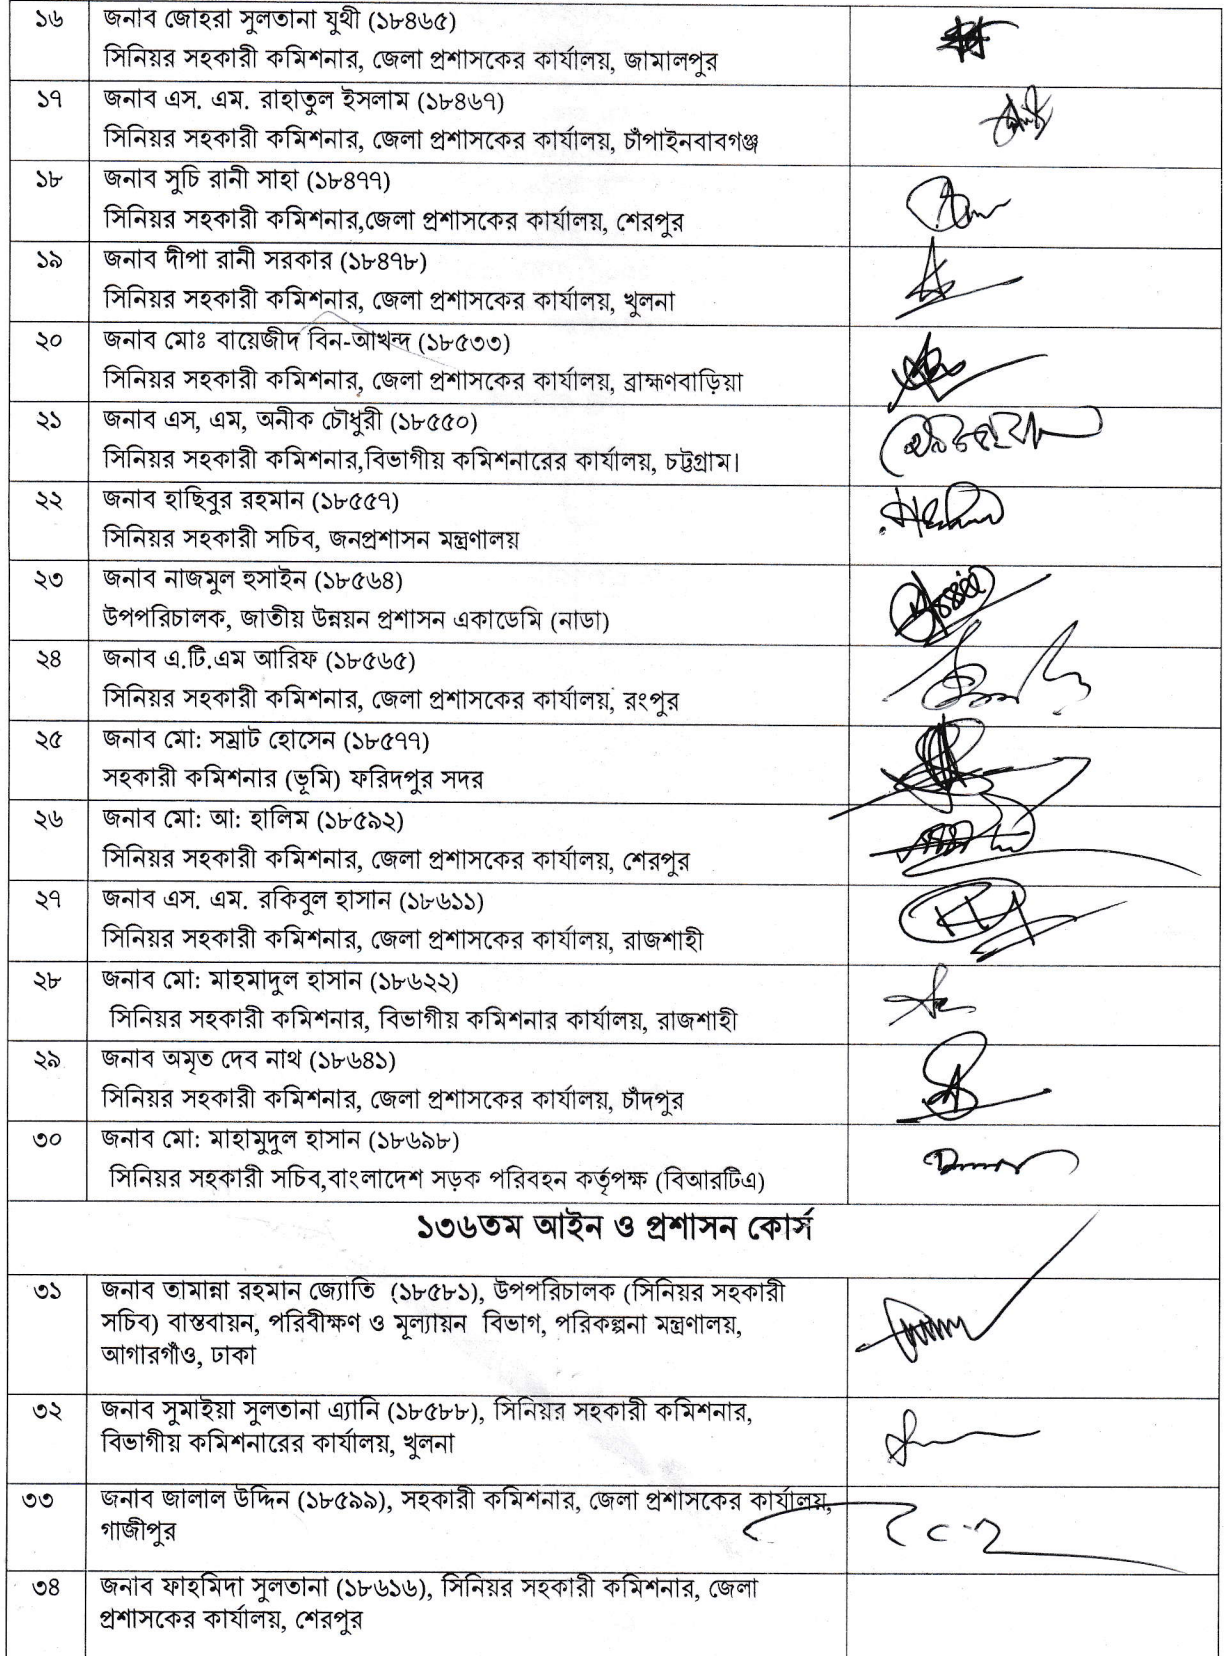 ১৬ জনাব জোহরা সুলতানা যুথী (১৮৪৬৫)
সিনিয়র সহকারী কমিশনার, জেলা প্রশাসকের কার্যালয়, জামালপুর
১৭ জনাব এস. এম. রাহাতুল ইসলাম (১৮৪৬৭)
সিনিয়র সহকারী কমিশনার, জেলা প্রশাসকের কার্যালয়, চাঁপাইনবাবগঞ্জ
১৮ জনাব সুচি রানী সাহা (১৮৪৭৭)
সিনিয়র সহকারী কমিশনার,জেলা প্রশাসকের কার্যালয়, শেরপুর
১৯ জনাব দীপা রানী সরকার (১৮৪৭৮)
সিনিয়র সহকারী কমিশনার, জেলা প্রশাসকের কার্যালয়, খুলনা
২০ জনাব মোঃ বায়েজীদ বিন-আখন্দ (১৮৫৩৩)
সিনিয়র সহকারী কমিশনার, জেলা প্রশাসকের কার্যালয়, ব্রাহ্মণবাড়িয়া
২১ জনাব এস, এম, অনীক চৌধুরী (১৮৫৫০)
সিনিয়র সহকারী কমিশনার,বিভাগীয় কমিশনারের কার্যালয়, চট্টগ্রাম।
২২ জনাব হাছিবুর রহমান (১৮৫৫৭)
সিনিয়র সহকারী সচিব, জনপ্রশাসন মন্ত্রণালয়
২৩ জনাব নাজমুল হুসাইন (১৮৫৬৪)
উপপরিচালক, জাতীয় উন্নয়ন প্রশাসন একাডেমি (নাডা)
২৪ জনাব এ.টি.এম আরিফ (১৮৫৬৫)
সিনিয়র সহকারী কমিশনার, জেলা প্রশাসকের কার্যালয়, রংপুর
২৫ জনাব মো: সম্রাট হোসেন (১৮৫৭৭)
সহকারী কমিশনার (ভূমি) ফরিদপুর সদর
২৬ জনাব মো: আ: হালিম (১৮৫৯২)
সিনিয়র সহকারী কমিশনার, জেলা প্রশাসকের কার্যালয়, শেরপুর
২৭ জনাব এস. এম. রকিবুল হাসান (১৮৬১১)
সিনিয়র সহকারী কমিশনার, জেলা প্রশাসকের কার্যালয়, রাজশাহী
২৮ জনাব মো: মাহমাদুল হাসান (১৮৬২২)
সিনিয়র সহকারী কমিশনার, বিভাগীয় কমিশনার কার্যালয়, রাজশাহী
২৯ জনাব অমৃত দেব নাথ (১৮৬৪১)
সিনিয়র সহকারী কমিশনার, জেলা প্রশাসকের কার্যালয়, চাঁদপুর
৩০ জনাব মো: মাহামুদুল হাসান (১৮৬৯৮)
সিনিয়র সহকারী সচিব,বাংলাদেশ সড়ক পরিবহন কর্তৃপক্ষ (বিআরটিএ)
১৩৬তম আইন ও প্রশাসন কোর্স
৩১ জনাব তামান্না রহমান জ্যোতি (১৮৫৮১), উপপরিচালক (সিনিয়র সহকারী
সচিব) বাস্তবায়ন, পরিবীক্ষণ ও মূল্যায়ন বিভাগ, পরিকল্পনা মন্ত্রণালয়,
আগারগাঁও, ঢাকা
৩২ জনাব সুমাইয়া সুলতানা এ্যানি (১৮৫৮৮), সিনিয়র সহকারী কমিশনার,
বিভাগীয় কমিশনারের কার্যালয়, খুলনা
৩৩ জনাব জালাল উদ্দিন (১৮৫৯৯), সহকারী কমিশনার, জেলা প্রশাসকের কার্যালয়,
গাজীপুর
৩৪ জনাব ফাহমিদা সুলতানা (১৮৬১৬), সিনিয়র সহকারী কমিশনার, জেলা
প্রশাসকের কার্যালয়, শেরপুর